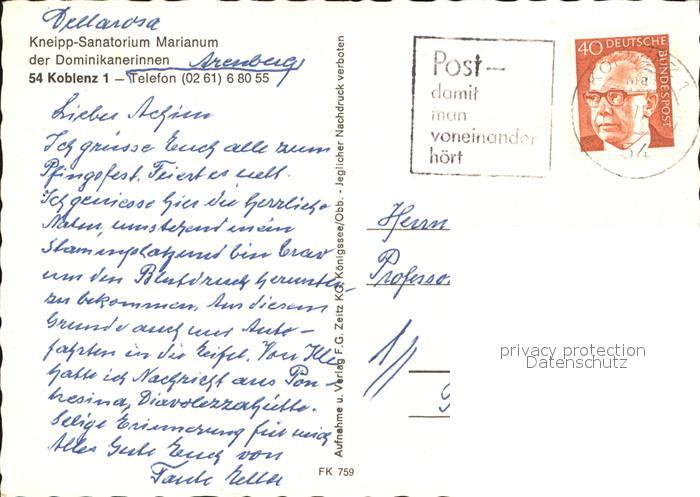 Dellarosa
Kneipp-Sanatorium Marianum
der Dominikanerinnen Arenberg
54 Koblenz 1 – Telefon (02 61) 6 80 55
Lieber Achim
Ich grüsse Euch alle zum
Pfingstfest. Feiert es nett.
Ich geniesse hier die herrliche
Natur, umstehend mein
Stammplatz und bin brav
um den Blutdruck herunter
zu bekommen. Aus diesem
Grunde auch nur Auto-
fahrten in die Eifel. Von
hatte ich Nachricht aus Pon-
tresina, Diavolezzahütte.
Selige Erinnerung für mich
Alles Gute Euch von
Tante
Aufnahme u. Verlag F.G. Zeitz KG, Königssee/Obb. - Jeglicher Nachdruck verboten
FK 759
Post –
damit
man
voneinander
hört
40 DEUTSCHE
BUNDESPOST
54
Herrn
Professor
privacy protection
Datenschutz